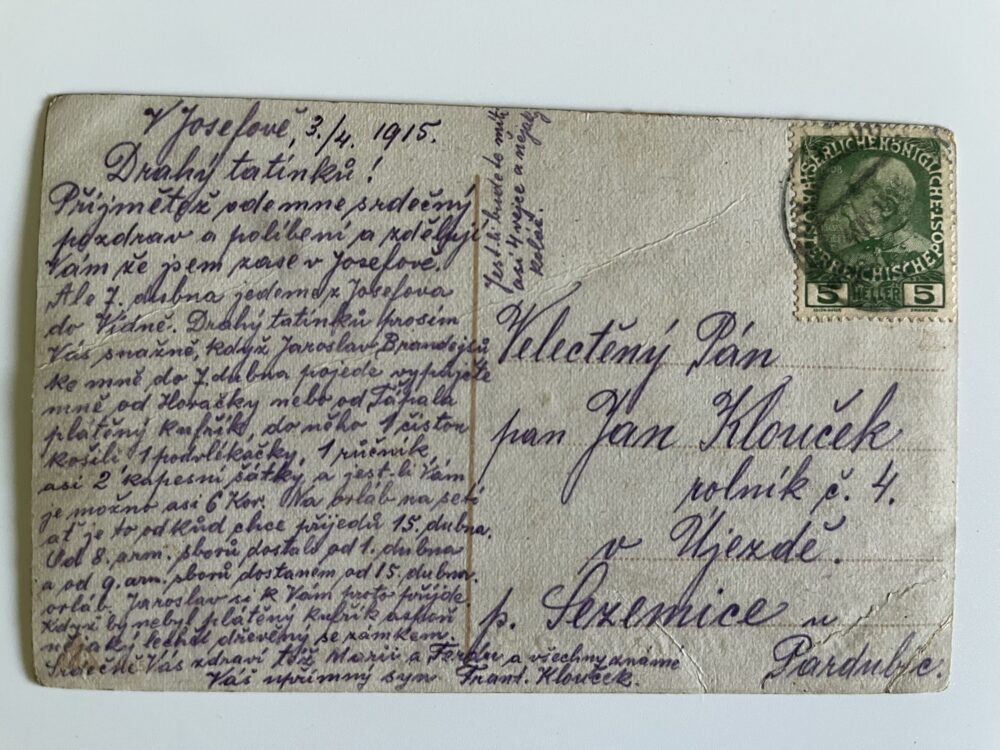 V Josefově, 3./4. 1915.
Drahý tatínků!
Přijmětež odemne srdečný
pozdrav a políbení a zděluji
Vám že jsem zase v Josefově.
Ale 7. dubna jedeme z Josefova
do Vídně. Drahý tatínků prosím
Vás snažně, když Jaroslav Brandejsů
ke mně do 7. dubna pojede vypujčte
mně od Horačky nebo od Ťápala
plátěný kufřík, do něho 1 čistou
košili 1 podvlékačky, 1 ručník,
asi 2 kapesní šátky, a jest-li Vám
je možno asi 6 Kor. Na orláb na setí
ať je to odkůd chce přijedů 15. dubna.
Od 8. arm. sborů dostali od 1. dubna
a od 9. arm. sborů dostanem od 15. dubna.
orláb. Jaroslav si k Vám proto přijde.
Když by nebyl plátěný kufřík aspoň
nějaký dřevěný se zámkem.
Srdečně Vás zdraví též Marii a Ferdu a všechny známe
Váš upřímný syn Frant. Klouček.
Jest-li budete míti
asi 4 vejce a nějaký
koláč.
KAISERLICHE KÖNIGLICHE
ÖSTERREICHISCHE POST
5 HELLER 5
Velectěný Pán
pan Jan Klouček
rolník č. 4.
v Újezdě.
p. Sezemice u
Pardubic.